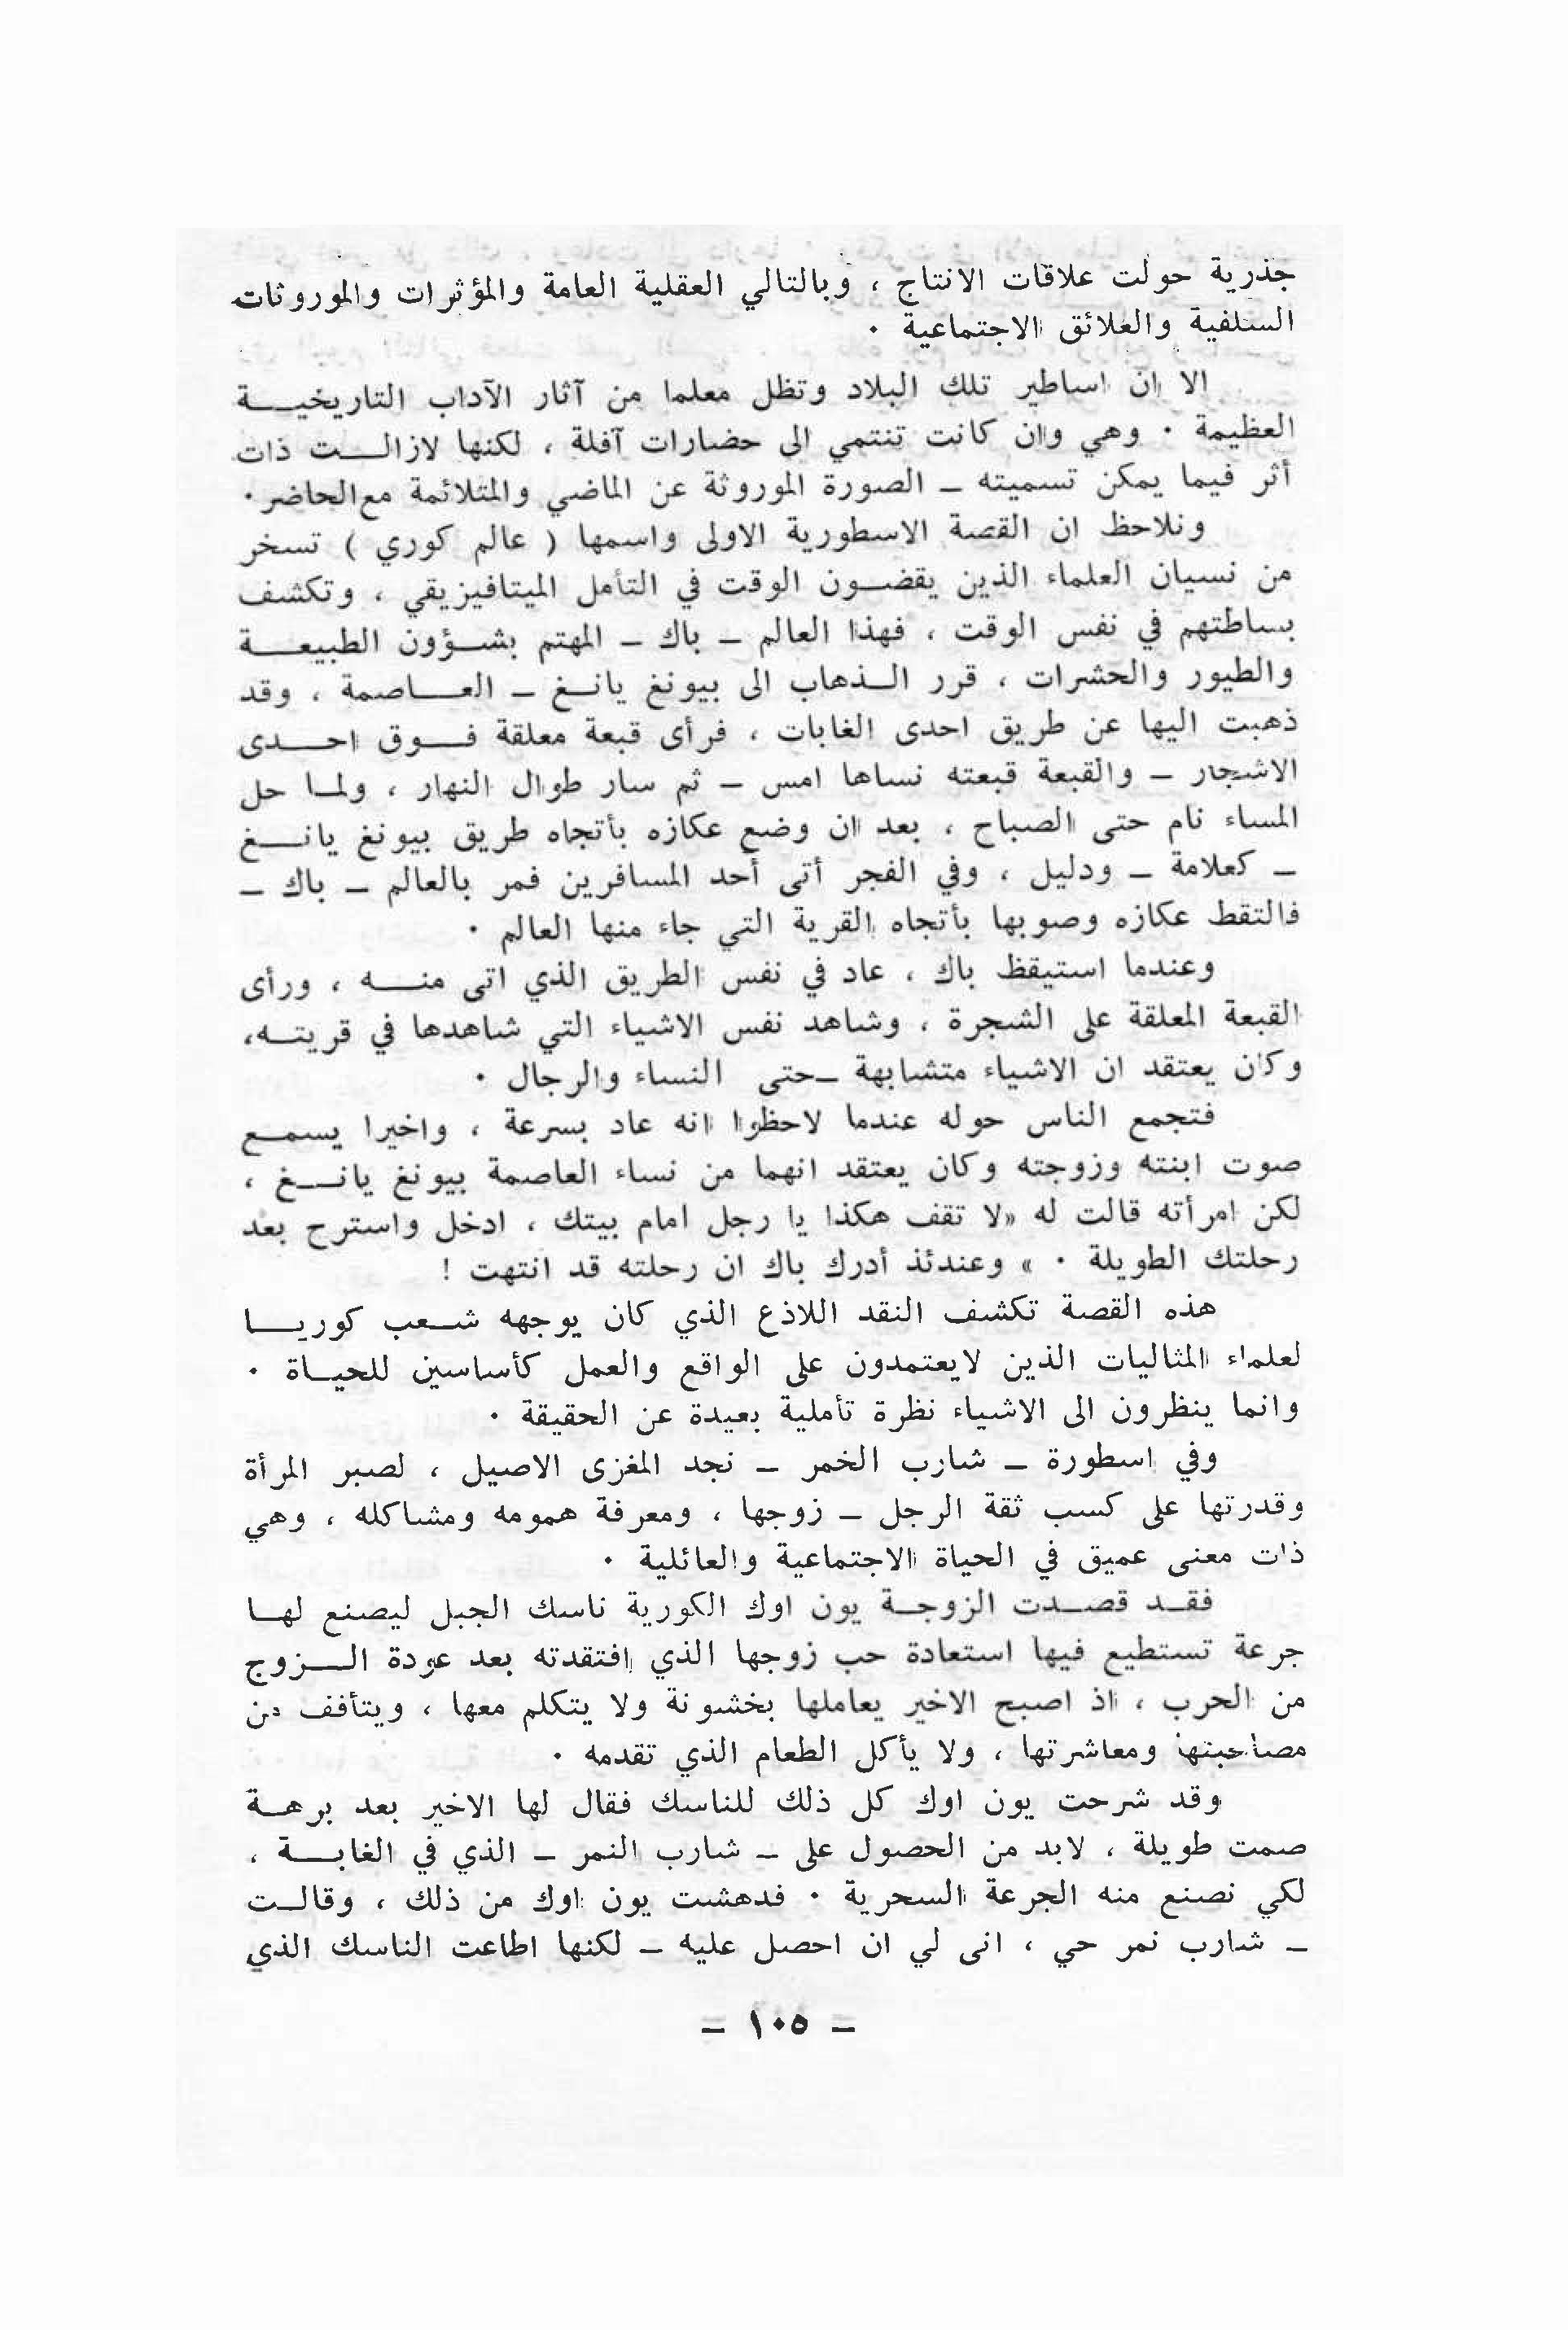 جذرية حولت علاقات الانتاج ، وبالتالي العقلية العامة والمؤثرات والموروثات
السلفية والعلائق الاجتماعية ٠
الا ان اساطير تلك البلاد وتظل معلما من آثار الآداب التاريخيــة
العظيمة ٠ وهي وان كانت تنتمي الى حضارات آفلة ، لكنها لازالــت ذات
أثر فيما يمكن تسميته ــ الصورة الموروثة عن الماضي والمتلائمة مع الحاضر ٠
ونلاحظ ان القصة الاسطورية الاولى واسمها ( عالم كوري ) تسخر
من نسيان العلماء الذين يقضــون الوقت في التأمل الميتافيزيقي ، وتكشف
بساطتهم في نفس الوقت ، فهذا العالم ــ باك ــ المهتم بشــؤون الطبيعــة
والطيور والحشرات ، قرر الــذهاب الى بيونغ يانــغ ــ العــاصمة ، وقد
ذهبت اليها عن طريق احدى الغابات ، فرأى قبعة معلقة فــوق احــدى
الاشجار ــ والقبعة قبعته نساها امس ــ ثم سار طوال النهار ، ولمــا حل
المساء نام حتى الصباح ، بعد ان وضع عكازه بأتجاه طريق بيونغ يانــغ
ــ كعلامة ــ ودليل ، وفي الفجر أتى أحد المسافرين فمر بالعالم ــ باك ــ
فالتقط عكازه وصوبها بأتجاه القرية التي جاء منها العالم ٠
وعندما استيقظ باك ، عاد في نفس الطريق الذي اتى منــه ، ورأى
القبعة المعلقة على الشجرة ، وشاهد نفس الاشياء التي شاهدها في قريتــه،
وكان يعتقد ان الاشياء متشابهة ــحتى النساء والرجال ٠
فتجمع الناس حوله عندما لاحظوا انه عاد بسرعة ، واخيرا يسمــع
صوت ابنته وزوجته وكان يعتقد انهما من نساء العاصمة بيونغ يانــغ ،
لكن امرأته قالت له «لا تقف هكذا يا رجل امام بيتك ، ادخل واسترح بعد
رحلتك الطويلة ٠ » وعندئذ أدرك باك ان رحلته قد انتهت !
هذه القصة تكشف النقد اللاذع الذي كان يوجهه شــعب كوريــا
لعلماء المثاليات الذين لايعتمدون على الواقع والعمل كأساسين للحيــاة ٠
وانما ينظرون الى الاشياء نظرة تأملية بعيدة عن الحقيقة ٠
وفي اسطورة ــ شارب الخمر ــ نجد المغزى الاصيل ، لصبر المرأة
وقدرتها على كسب ثقة الرجل ــ زوجها ، ومعرفة همومه ومشاكله ، وهي
ذات معنى عميق في الحياة الاجتماعية والعائلية ٠
فقــد قصــدت الزوجــة يون اوك الكورية ناسك الجبل ليصنع لهــا
جرعة تستطيع فيها استعادة حب زوجها الذي افتقدته بعد عودة الــزوج
من الحرب ، اذ اصبح الاخير يعاملها بخشونة ولا يتكلم معها ، ويتأفف من
مصاحبتها ومعاشرتها ، ولا يأكل الطعام الذي تقدمه ٠
وقد شرحت يون اوك كل ذلك للناسك فقال لها الاخير بعد برهــة
صمت طويلة ، لابد من الحصول على ــ شارب النمر ــ الذي في الغابــة ،
لكي نصنع منه الجرعة السحرية ٠ فدهشت يون اوك من ذلك ، وقالــت
ــ شارب نمر حي ، انى لي ان احصل عليه ــ لكنها اطاعت الناسك الذي
ــ ١٠٥ ــ